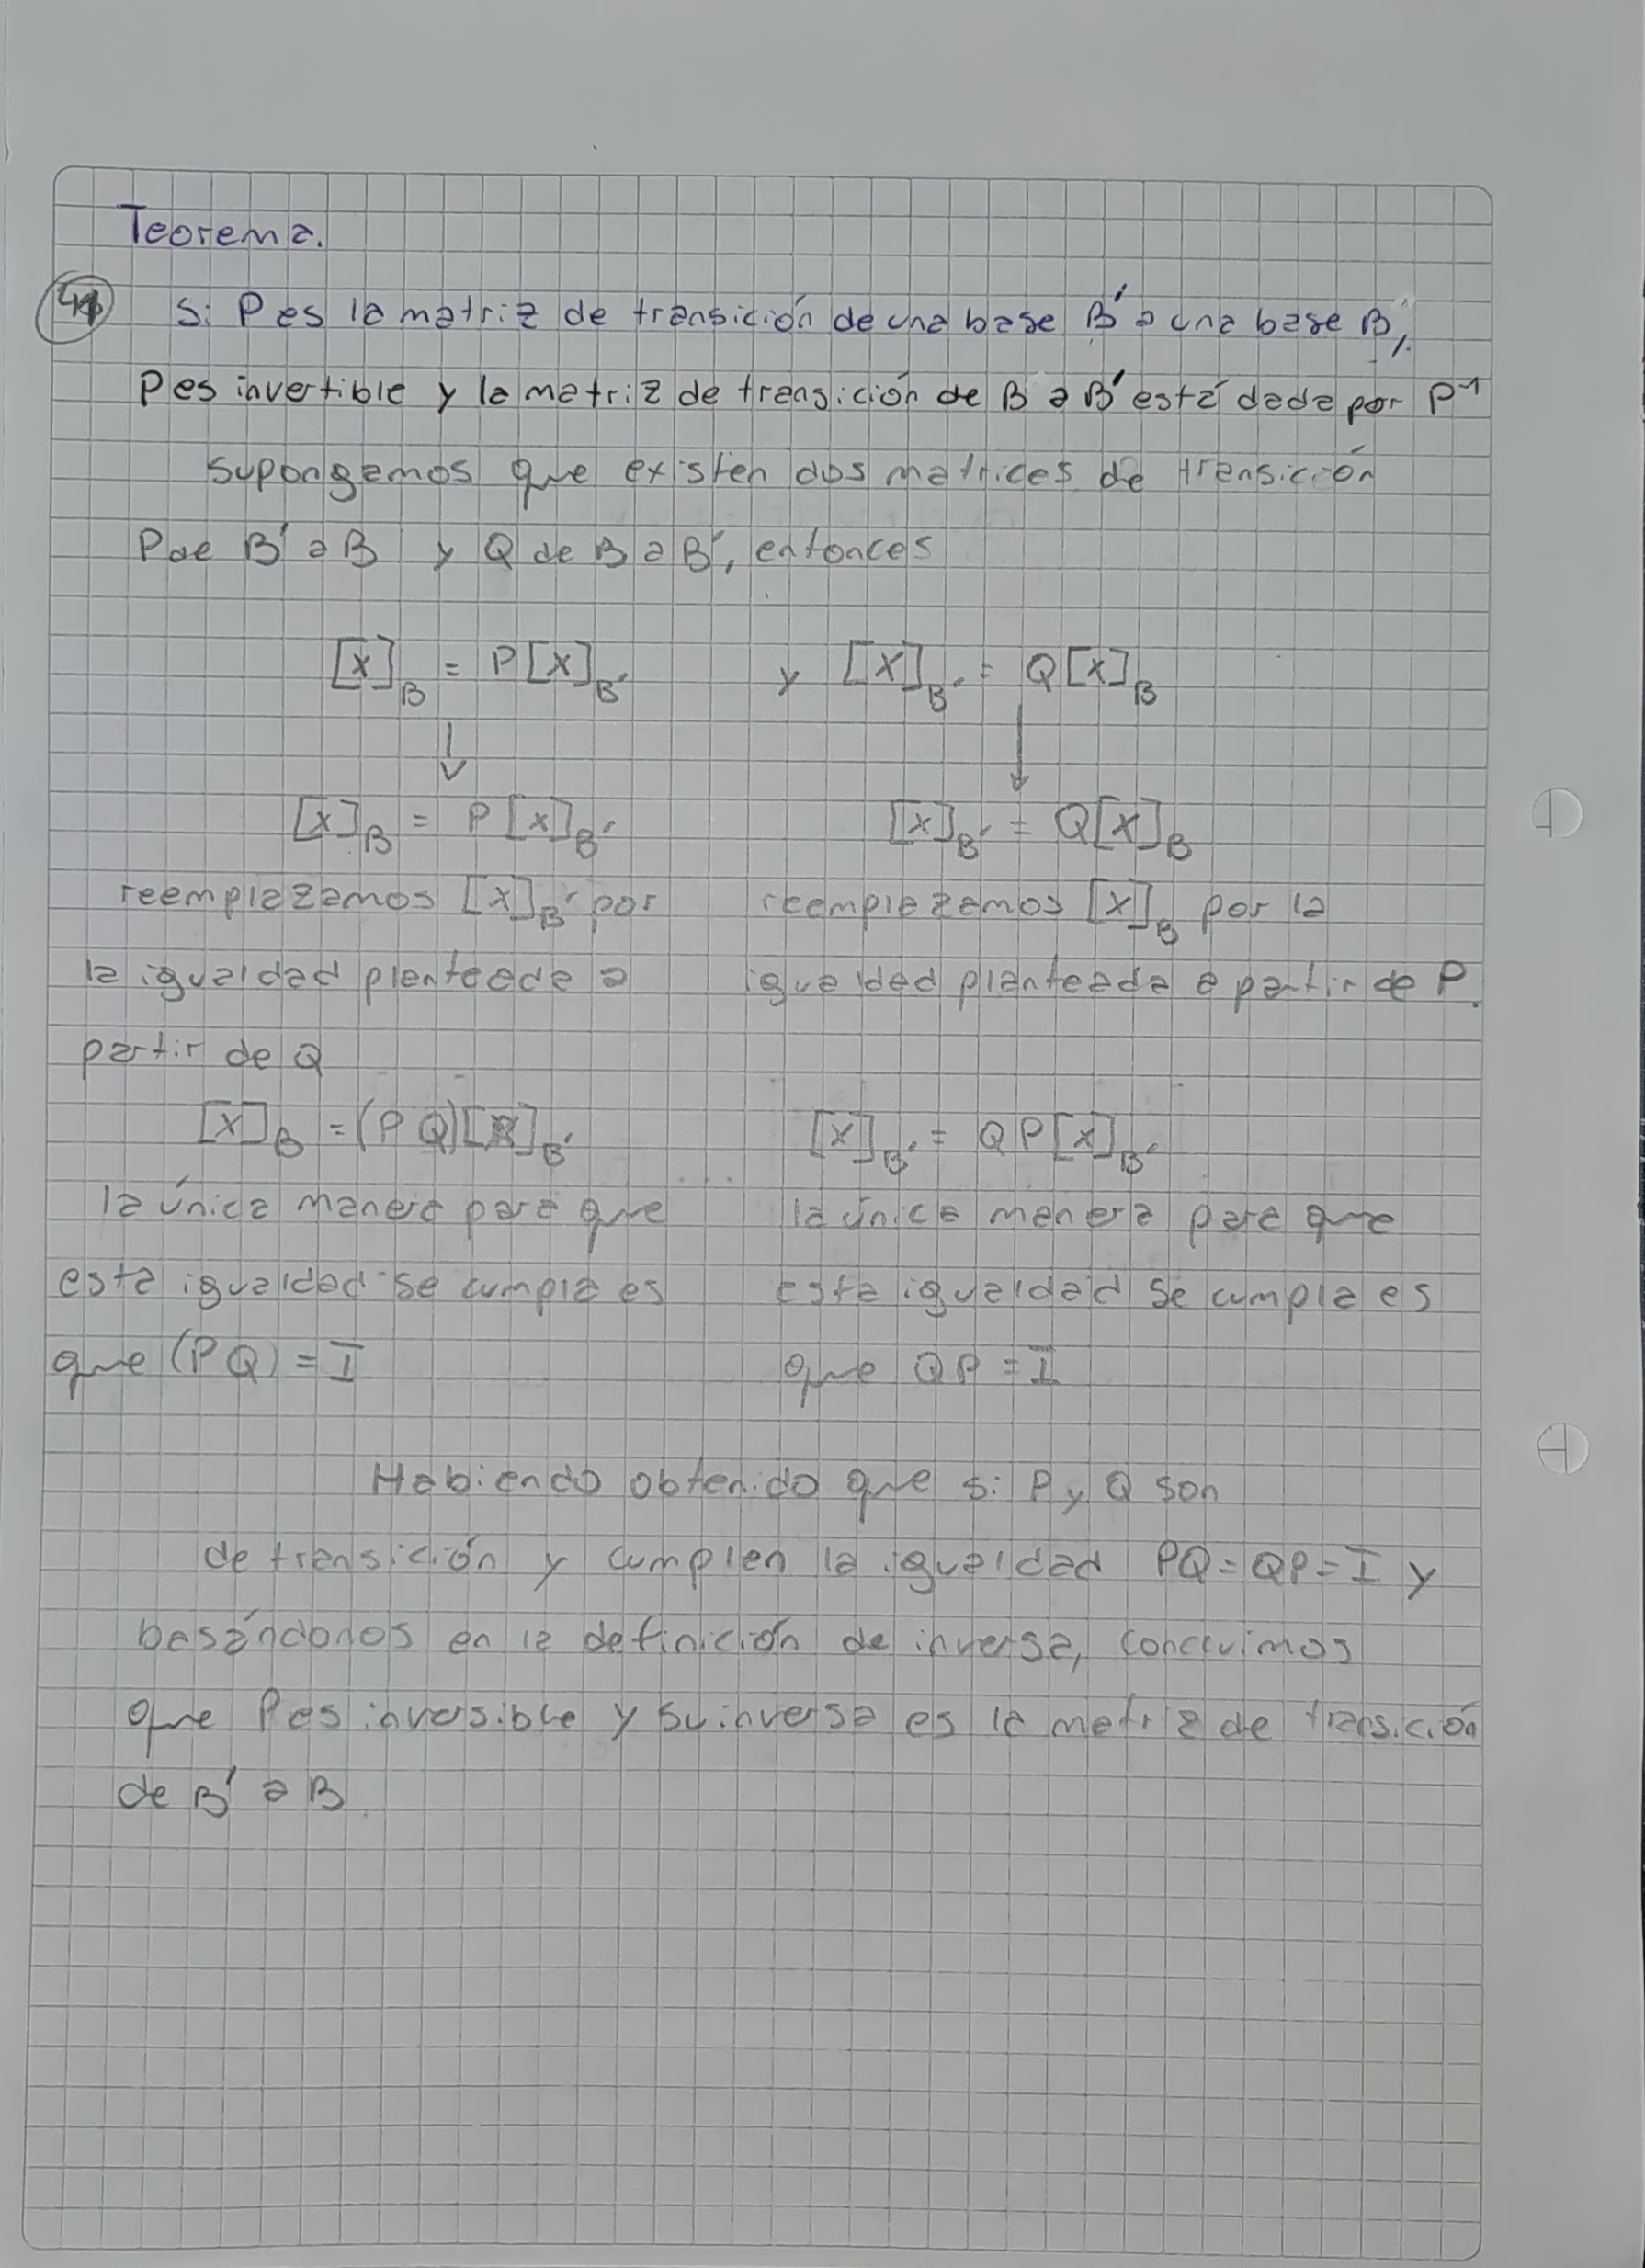 Teorema.
41 Si P es la matriz de transición de una base B' a una base B,
P es invertible y la matriz de transición de B a B' está dada por P⁻¹
supongamos que existen dos matrices de transición
P de B' a B y Q de B a B', entonces
[x]_B = P[x]_B' y [x]_B' = Q[x]_B
↓ ↓
[x]_B = P[x]_B' [x]_B' = Q[x]_B
reemplazamos [x]_B' por reemplazamos [x]_B por la
la igualdad planteada a igualdad planteada a partir de P.
partir de Q
[x]_B = (PQ)[ ]_B' [x]_B' = QP[x]_B'
la única manera para que la única manera para que
esta igualdad se cumpla es esta igualdad se cumpla es
que (PQ) = I que QP = I
Habiendo obtenido que si P y Q son
de transición y cumplen la igualdad PQ = QP = I y
basándonos en la definición de inversa, concluimos
que P es inversible y su inversa es la matriz de transición
de B' a B